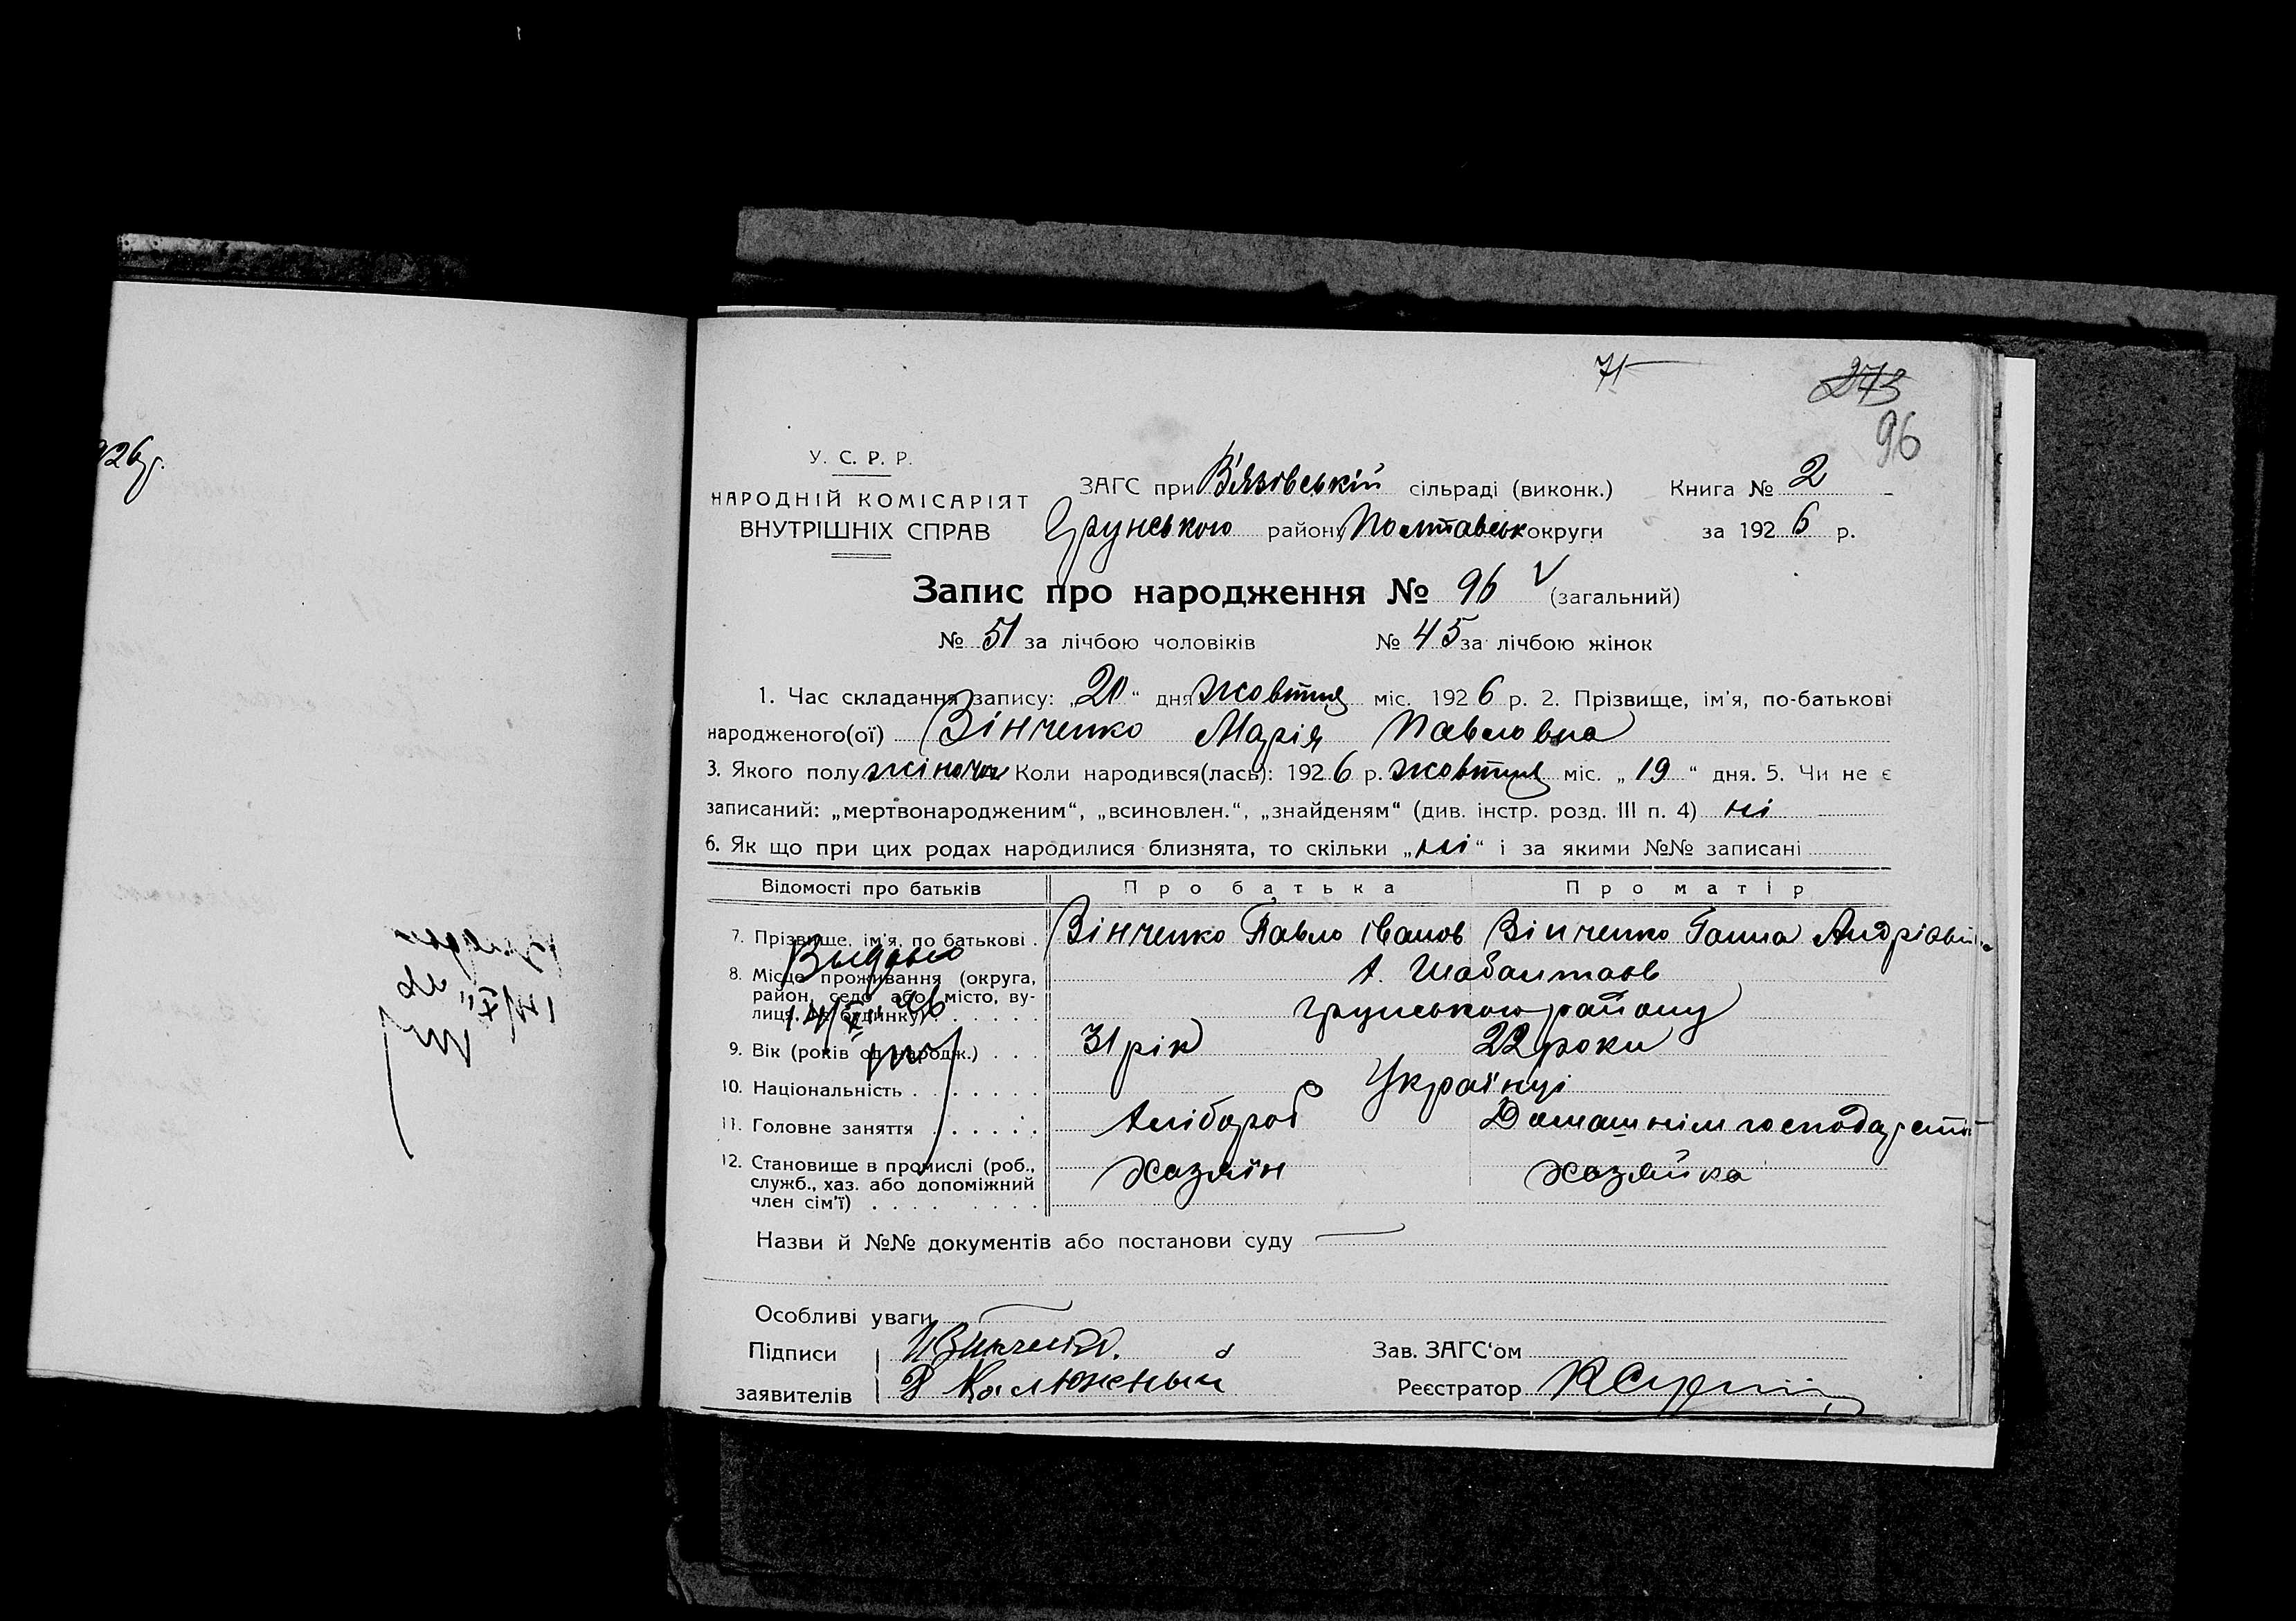 926р.
71
273
96
У. С. Р. Р.
НАРОДНІЙ КОМІСАРІЯТ
ВНУТРІШНІХ СПРАВ
ЗАГС при В'язівській сільраді (виконк.) Книга № 2
Грунського району Полтавськ округи за 1926 р.
Запис про народження № 96 (загальний)
№ 51 за лічбою чоловіків № 45 за лічбою жінок
1. Час складання запису: „20“ дня жовтня міс. 1926 р. 2. Прізвище, ім'я, по-батькові
народженого(ої) Вінченко Марія Павловна
3. Якого полу жіноч Коли народився(лась): 1926 р. жовтня міс. „19“ дня. 5. Чи не є
записаний: „мертвонародженим“, „всиновлен.“, „знайденям“ (див. інстр. розд. III п. 4) ні
6. Як що при цих родах народилися близнята, то скільки „ні“ і за якими №№ записані
Відомості про батьків Про батька Про матір
7. Прізвище, ім'я, по батькові Вінченко Павло Іванов Вінченко Ганна Андріївн
Видано
8. Місце проживання (округа, район, село або місто, вулиця, № будинку)
грунського району
14/XII 46
9. Вік (років од народж.) 31 рік 22 роки
10. Національність Українці
11. Головне заняття хлібороб Домашнім господарств
12. Становище в промислі (роб., служб., хаз. або допоміжний член сім'ї) хазяїн хазяйка
Назви й №№ документів або постанови суду
Особливі уваги
Підписи
заявителів Калюжный
Зав. ЗАГС'ом
Реєстратор